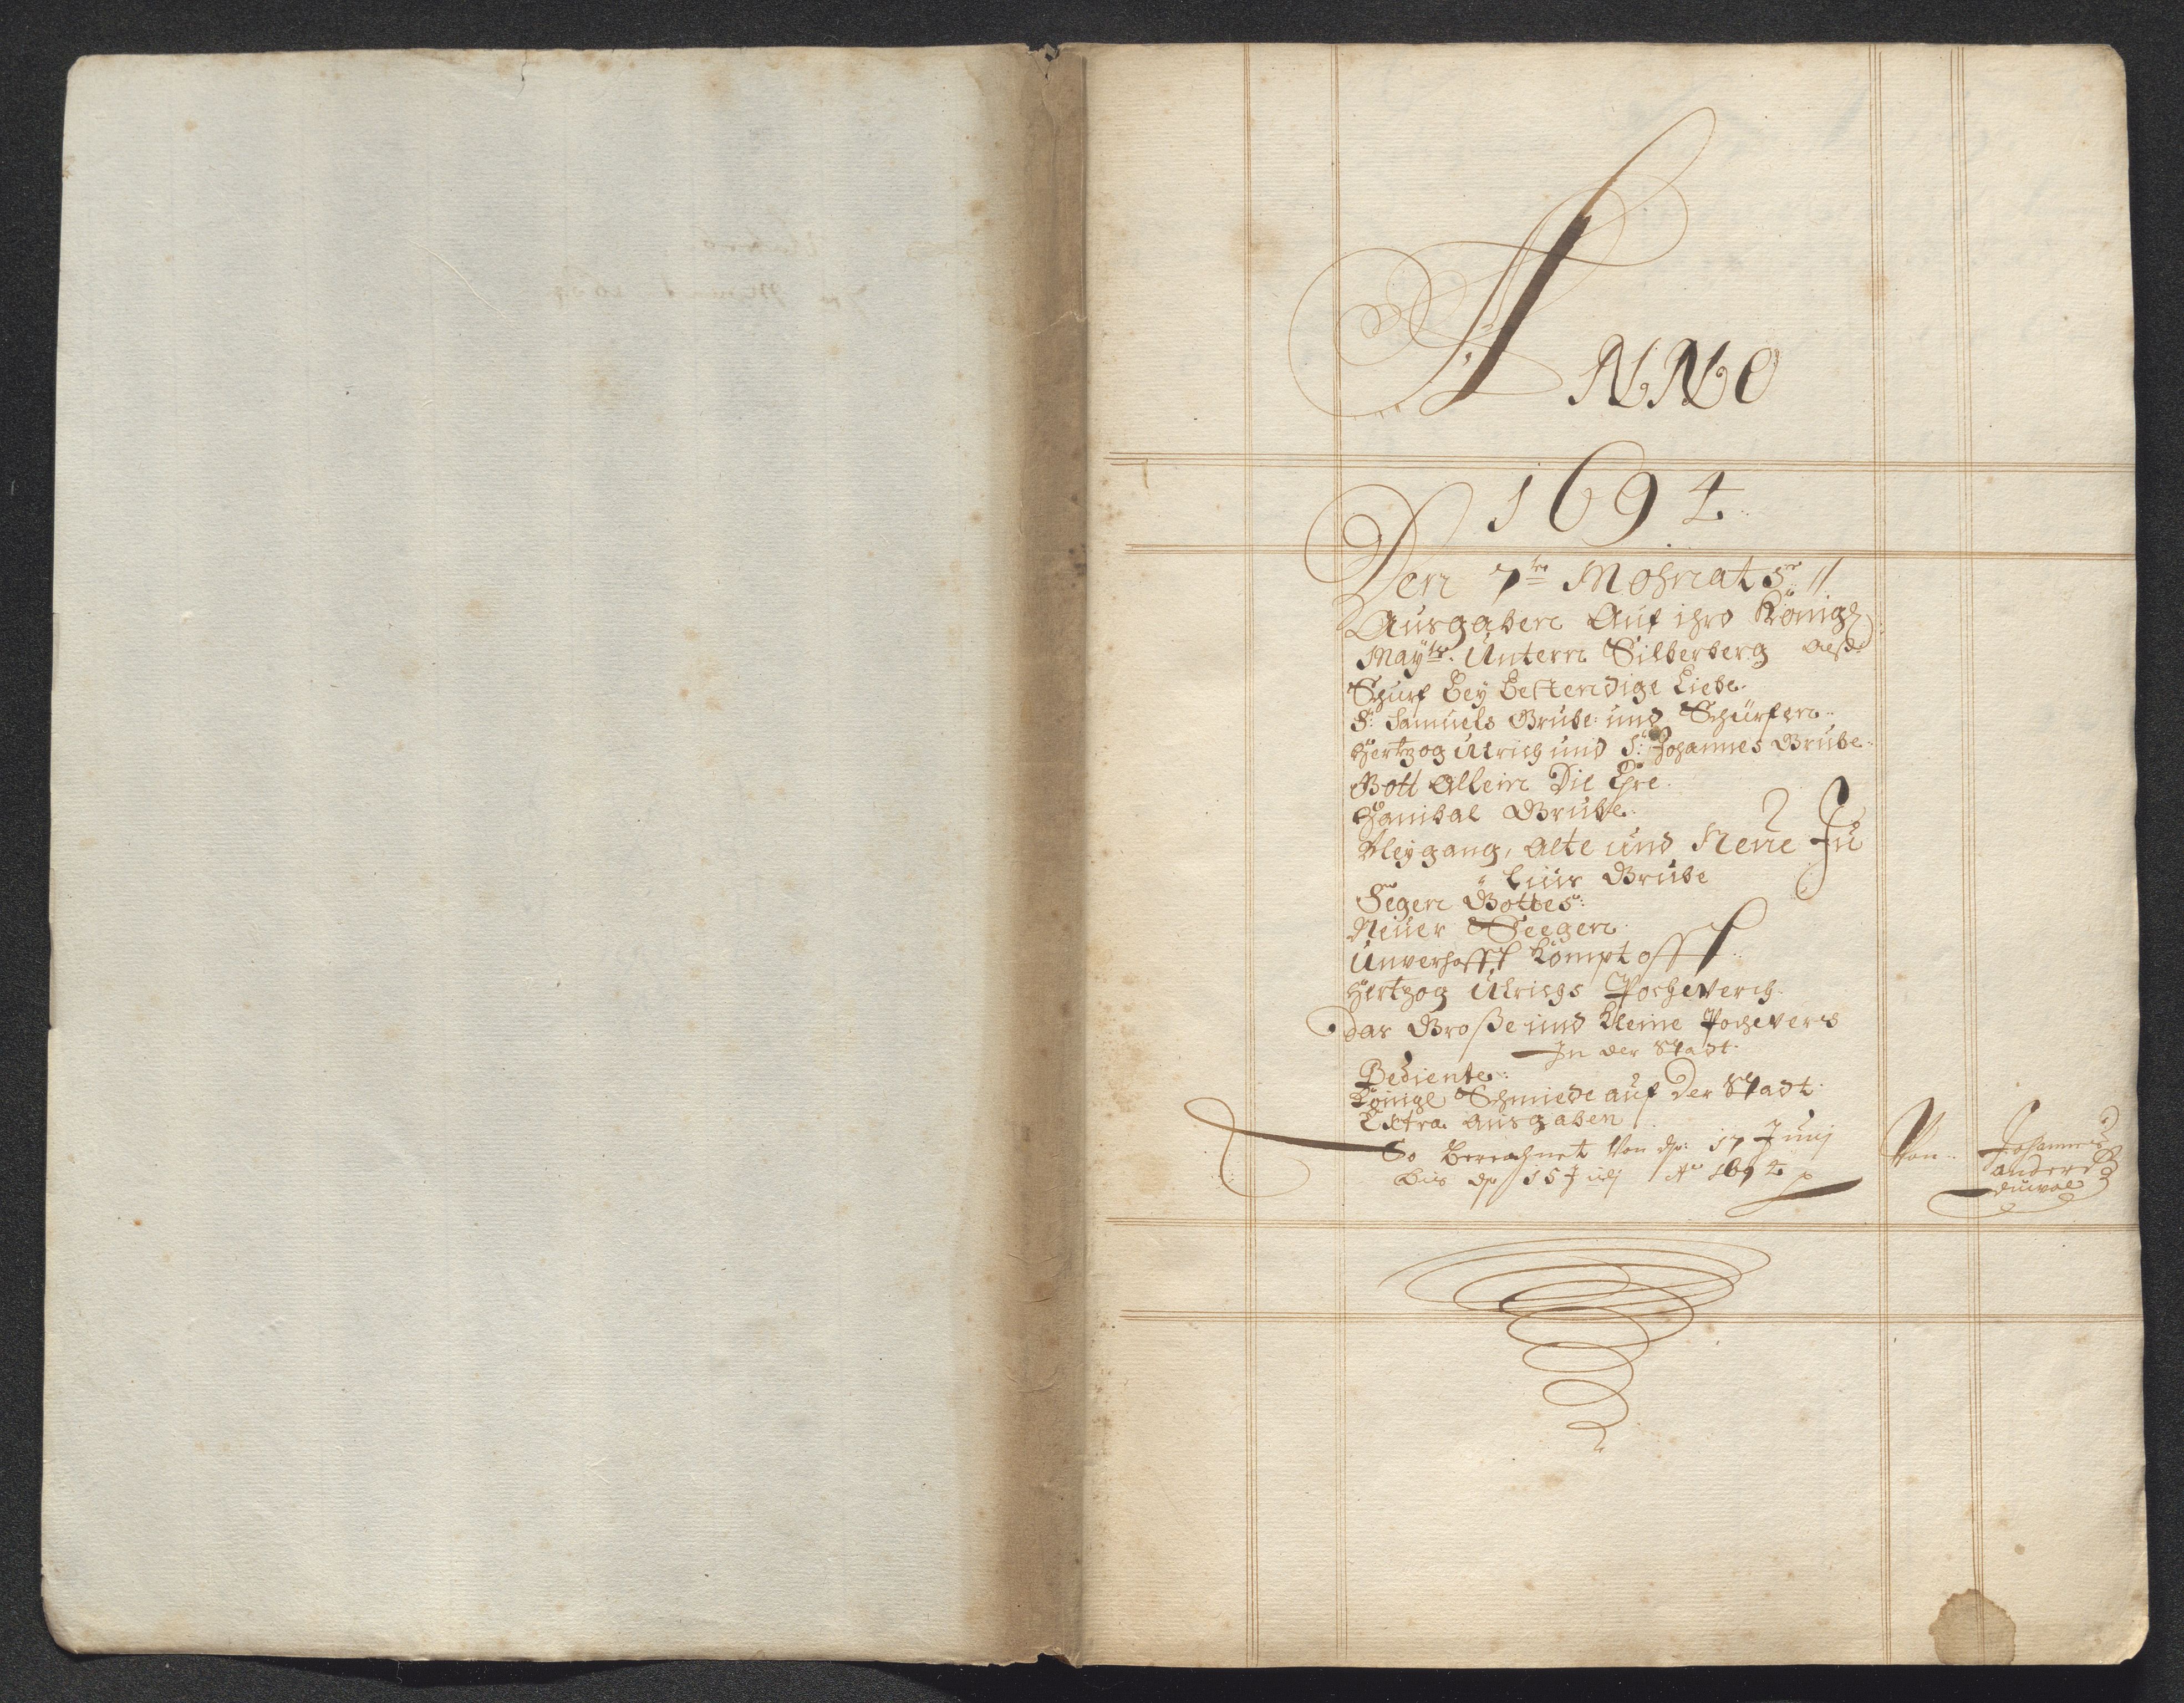 ANNO
1694
Den 7te Mohnats
Ausgaben Auf ihro Königl
Mayts. Untern Silberberg
Schurf Bey Bestendige Liebe.
S: Samuels Grube und Schürfen
Hertzog Ulrich und S: Johannes Grube
Gott Allein Die Ehre.
Hanibal Grube.
Bleygang, Alte und Neue Ju
lius Grube
Segen Gottes:
Neuer Seegen.
Unverhofft kompt offt
Hertzog Ulrichs Pochewerch.
das Große und Kleine Pochewerch
In der Stadt.
Bediente:
Königl Schmiede auf der Stadt.
Extra Ausgaben
So Berechnet Von dn: 17 Junij
bis dn 15 Julij Ao 1694
Von Johannes
Anders